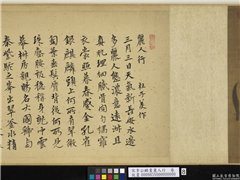 麗人行
杜子美作
三月三日天氣新長安水邊
多麗人態濃意遠淑且
真肌理細膩骨肉勻繡羅
衣裳照暮春蹙金孔雀
銀麒麟頭上何所有翠微
㔩葉垂鬢唇背後何所見
珠壓腰衱穩稱身就中雲
幕椒房親賜名大國虢與
秦紫駝之峰出翠釜水精